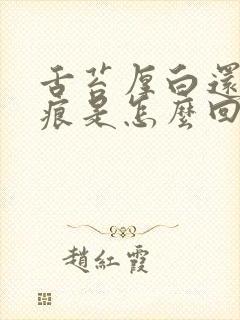 舌苔厚白還
痕是怎麼回
趙紅霞